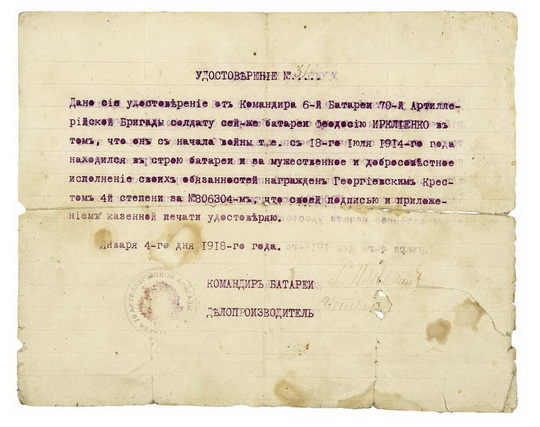 УДОСТОВѢРЕНІЕ №
Дано сіе удостовѣреніе отъ Командира 6-й Батареи 70-й Артилле-
рійской Бригады солдату сей-же батареи Феодосію ИРКЛІЕНКО въ
томъ, что онъ съ начала войны т.е. съ 18-го Іюля 1914-го года
находился въ строю батареи и за мужественное и добросовѣстное
исполненіе своихъ обязанностей награжденъ Георгіевскимъ Крес-
томъ 4й степени за №806304-мъ, что своей подписью и приложе-
ніемъ казенной печати удостовѣряю.
Января 4-го дня 1918-го года.
КОМАНДИРЪ БАТАРЕИ
ДѢЛОПРОИЗВОДИТЕЛЬ